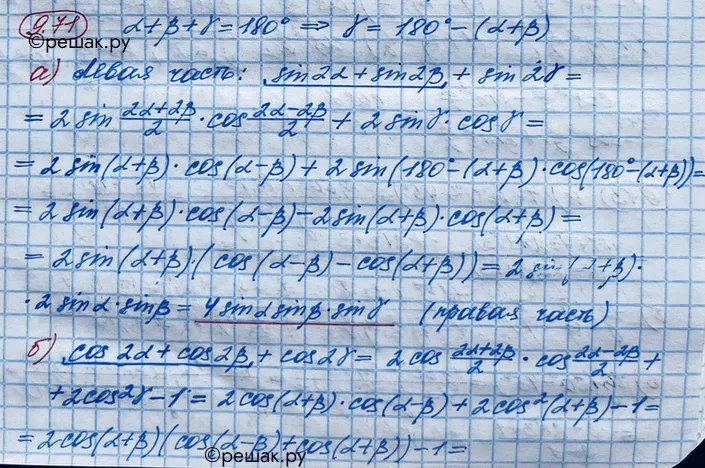 9.71 α+β+γ=180° ⇒ γ=180°-(α+β)
©решак.ру
а) Левая часть: sin2α+sin2β+sin2γ=
=2sin (2α+2β)/2 · cos (2α-2β)/2 + 2sinγ·cosγ=
=2sin(α+β)·cos(α-β)+2sin(180°-(α+β)·cos(180°-(α+β))=
=2sin(α+β)·cos(α-β)-2sin(α+β)·cos(α+β)=
=2sin(α+β)·(cos(α-β)-cos(α+β))=2sin(α+β)·
·2sinα·sinβ=4sinαsinβ·sinγ (правая часть)
б) cos2α+cos2β+cos2γ= 2cos (2α+2β)/2 · cos (2α-2β)/2 +
+2cos²γ-1=2cos(α+β)·cos(α-β)+2cos²(α+β)-1=
=2cos(α+β)(cos(α-β)+cos(α+β))-1=
©решак.ру